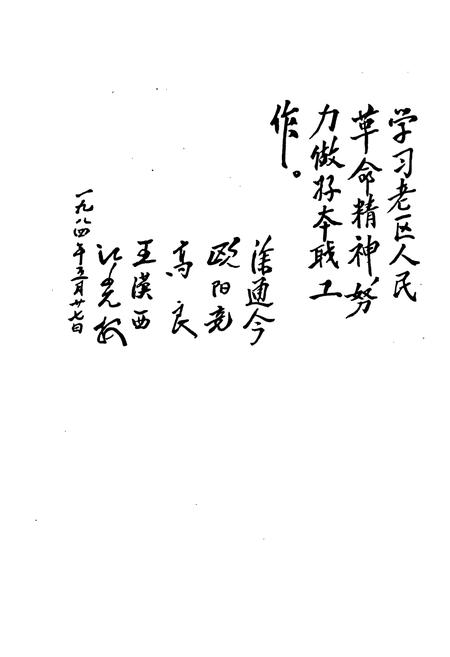 学习老区人民
革命精神，努
力做好本职工
作。
涂通今
欧阳竞
高良
王汉西
一九八四年五月廿七日